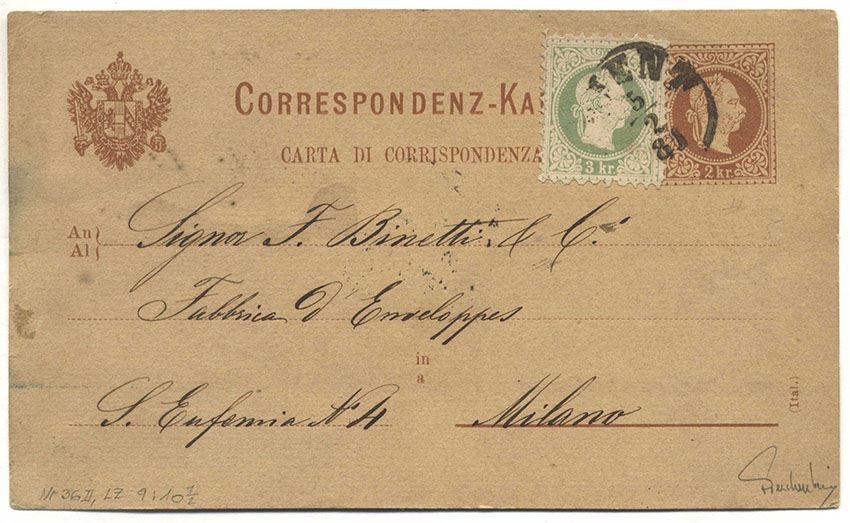 CORRESPONDENZ-KA
CARTA DI CORRISPONDENZA
3 kr.
2 kr.
5/2
An
Al
Signor F. Binetti & C.i
Fabbrica d'Enveloppes
in
a
S. Eufemia No 4 Milano
(Ital.)
Nr 36 II, LZ 9:10 1/2